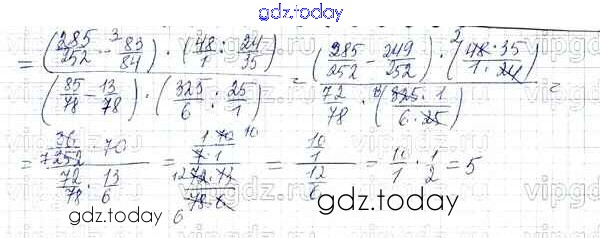 gdz.today
= ((285/252 - ³83/84) · (48/1 : 24/35)) / ((85/78 - 13/78) · (325/6 : 25/1)) = ((285/252 - 249/252) · (²48·35 / 1·24)) / (72/78 · (325·1 / 6·25)) =
= (36/7252 · 70) / (72/78 · 13/6) = (1·70 10 / 7·1) / (12 72·13 / 78·6 6) = (10/1) / (12/6) = 10/1 · 1/2 = 5
gdz.today
gdz.today